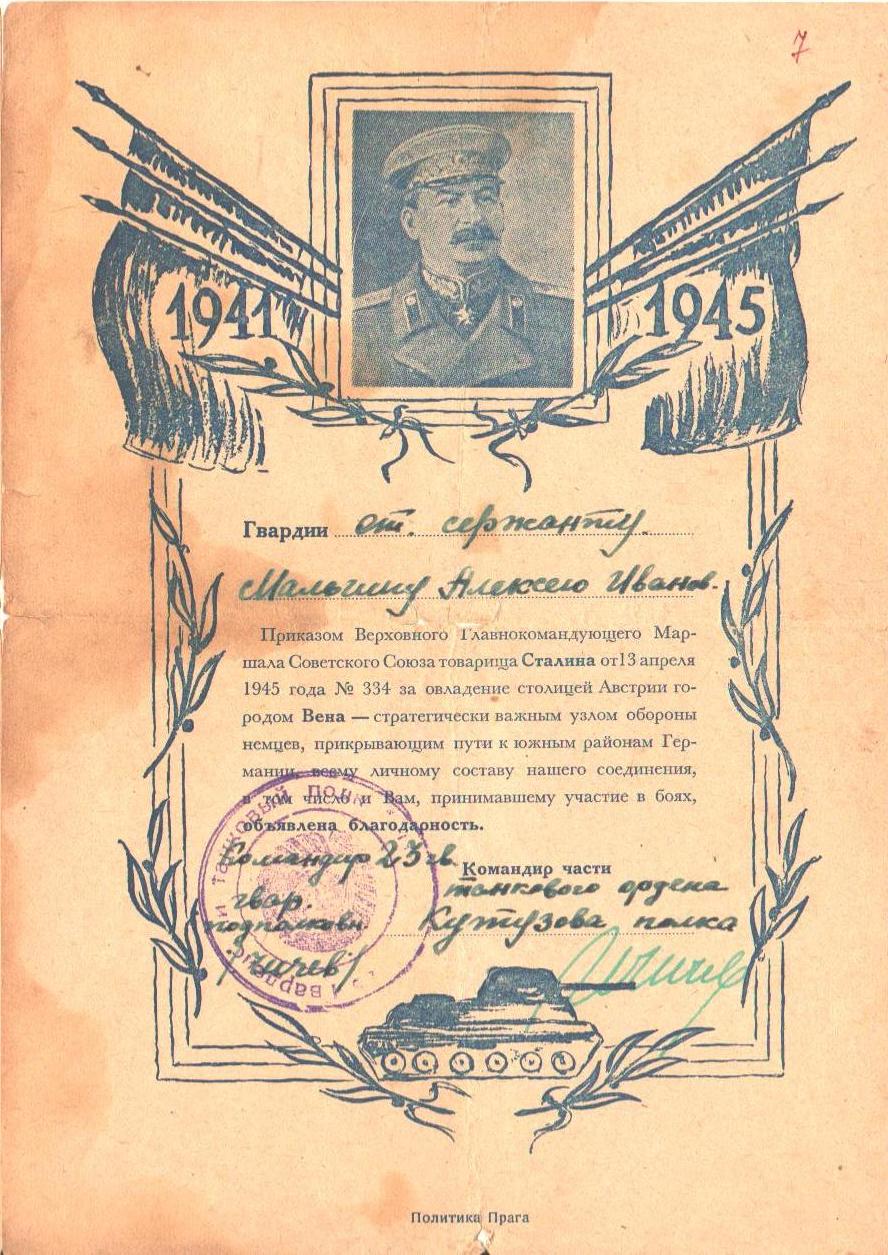 7
1941
1945
Гвардии ст. сержанту
Мальгину Алексею Иванов.
Приказом Верховного Главнокомандующего Мар-
шала Советского Союза товарища Сталина от 13 апреля
1945 года № 334 за овладение столицей Австрии го-
родом Вена — стратегически важным узлом обороны
немцев, прикрывающим пути к южным районам Гер-
мании, всему личному составу нашего соединения,
в том число и Вам, принимавшему участие в боях,
объявлена благодарность.
Командир 23 гв.
Командир части
танкового ордена
гвар.
подполковн
Кутузова полка
/Чичев/
танковый полк
Политика Прага